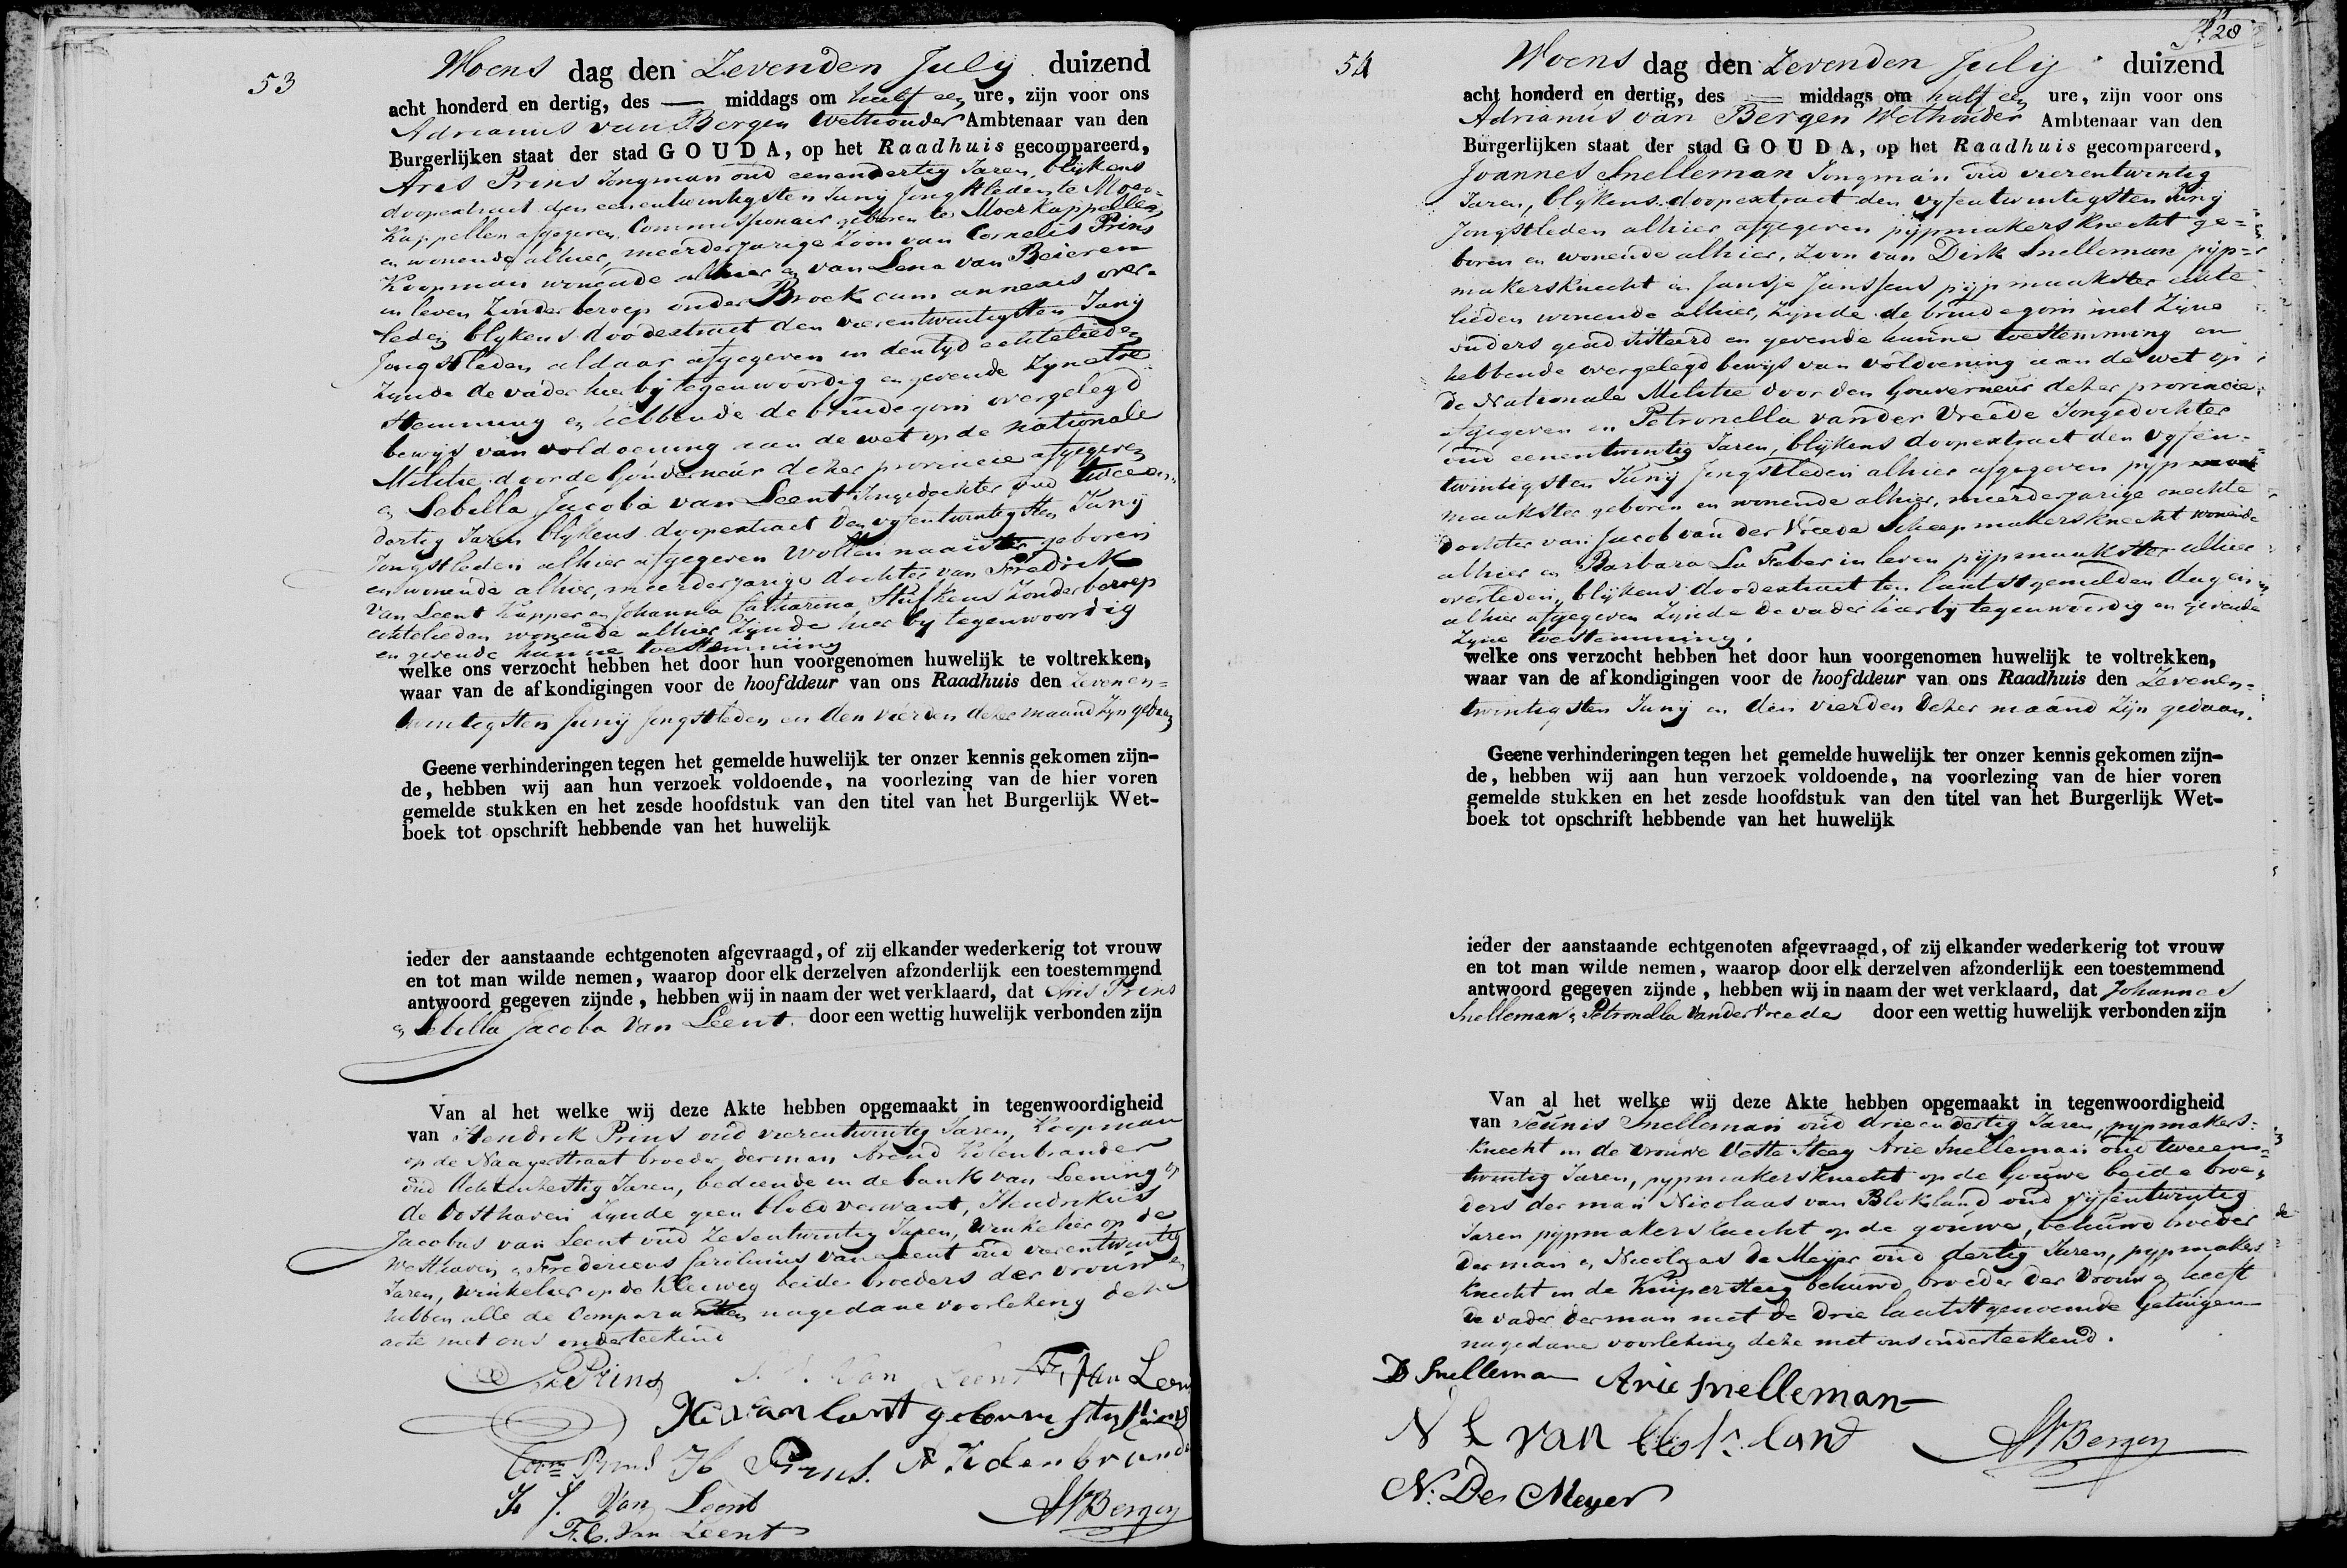 53
Woens dag den Zevenden July duizend
acht honderd en dertig, des — middags om half een ure, zijn voor ons
Adrianus van Bergen Wethouder Ambtenaar van den
Burgerlijken staat der stad GOUDA, op het Raadhuis gecompareerd,
Aris Prins Jongman oud eenendertig Jaren, blykens
doopextract den eenentwintigsten Juny Jongstleden te Moer-
kappellen afgegeven Commissionair geboren te Moerkappellen
en wonende alhier, meerderjarige Zoon van Cornelis Prins
Koopman wonende alhier en van Lena van Beieren
in leven Zonder beroep onder Broek cum annexis over-
leden blykens doodextract den vierentwintigsten Juny
Jongstleden aldaar afgegeven in den tyd echtelieden
Zynde de vader hier bij tegenwoordig en gevende Zyne toe
stemming en hebbende de bruidegom overgelegd
bewys van voldoening aan de wet op de nationale
Militie door de Gouverneur dezer provincie afgegeven
en Sebilla Jacoba van Leent Jongedochter oud tweeen-
dertig Jaren blykens doopextract den vyfentwintigsten Juny
Jongstleden alhier afgegeven Wollennaaister geboren
en wonende alhier, meerderjarige dochter van Fredrik
van Leent Kapper en Johanna Catharina Stufkens Zonder beroep
echtelieden wonende alhier Zynde hier by tegenwoordig
en gevende hunne toestemming
welke ons verzocht hebben het door hun voorgenomen huwelijk te voltrekken,
waar van de afkondigingen voor de hoofddeur van ons Raadhuis den Zevenen=
twintigsten Juny Jongstleden en den vierden dezer maand Zyn gedaan
Geene verhinderingen tegen het gemelde huwelijk ter onzer kennis gekomen zijn-
de, hebben wij aan hun verzoek voldoende, na voorlezing van de hier voren
gemelde stukken en het zesde hoofdstuk van den titel van het Burgerlijk Wet-
boek tot opschrift hebbende van het huwelijk
ieder der aanstaande echtgenoten afgevraagd, of zij elkander wederkerig tot vrouw
en tot man wilde nemen, waarop door elk derzelven afzonderlijk een toestemmend
antwoord gegeven zijnde, hebben wij in naam der wet verklaard, dat Aris Prins
en Sebilla Jacoba Van Leent. door een wettig huwelijk verbonden zijn
Van al het welke wij deze Akte hebben opgemaakt in tegenwoordigheid
van Hendrik Prins oud vierentwintig Jaren, Koopman
op de Naayerstraat broeder der man Arend Kolenbrander
oud Jaren, bediende in de bank van Leening op
de Oosthaven Zynde geen bloedverwant, Hendrikus
Jacobus van Leent oud Zesentwintig Jaren, Winkelier op de
Westhaven en Fredericus Carolinus van Leent oud vierentwintig
Jaren, Winkelier op de Kleiweg beide broeders der vrouw en
hebben alle de Comparanten nagedane voorlezing deze
acte met ons onderteekend
A Prins
S. J. Van Leent
F. Van Leent
Corn Prins
H Prins.
A Kolenbrander
H J. Van Leent
F. C. Van Leent
AvBergen
28
54
Woens dag den Zevenden July duizend
acht honderd en dertig, des — middags om half een ure, zijn voor ons
Adrianus van Bergen Wethouder Ambtenaar van den
Burgerlijken staat der stad GOUDA, op het Raadhuis gecompareerd,
Joannes Snelleman Jongman oud vierentwintig
Jaren, blykens doopextract den vyfentwintigsten Juny
Jongstleden alhier afgegeven pypmakersknecht ge=
boren en wonende alhier, Zoon van Dirk Snelleman pyp=
makersknecht en Jansje Janssens pypmaakster echte
lieden wonende alhier, Zynde de bruidegom met Zyne
ouders geadsisteerd en gevende hunne toestemming en
hebbende overgelegd bewys van voldoening aan de wet op
de Nationale Militie door den Gouverneur dezer provincie
afgegeven en Petronella vander Vreede Jongedochter
oud eenentwintig Jaren, blykens doopextract den vyfen-
twintigsten Juny Jongstleden alhier afgegeven pyp
maakster geboren en wonende alhier, meerderjarige onechte
dochter van Jacob van der Vreede Scheepmakersknecht wonende
alhier en Barbara La Feber in leven pypmaakster alhier
overleden, blykens doodextract ten laatstgemelden dage
alhier afgegeven Zynde de vader hierby tegenwoordig en gevende
Zyne toestemming.
welke ons verzocht hebben het door hun voorgenomen huwelijk te voltrekken,
waar van de afkondigingen voor de hoofddeur van ons Raadhuis den Zevenen=
twintigsten Juny en den vierden dezer maand Zijn gedaan.
Geene verhinderingen tegen het gemelde huwelijk ter onzer kennis gekomen zijn-
de, hebben wij aan hun verzoek voldoende, na voorlezing van de hier voren
gemelde stukken en het zesde hoofdstuk van den titel van het Burgerlijk Wet-
boek tot opschrift hebbende van het huwelijk
ieder der aanstaande echtgenoten afgevraagd, of zij elkander wederkerig tot vrouw
en tot man wilde nemen, waarop door elk derzelven afzonderlijk een toestemmend
antwoord gegeven zijnde, hebben wij in naam der wet verklaard, dat Johannes
Snelleman en Petronella Vander Vreede door een wettig huwelijk verbonden zijn
Van al het welke wij deze Akte hebben opgemaakt in tegenwoordigheid
van Teunis Snelleman oud drieendertig Jaren, pypmakers-
knecht in de Vrouwe Vette Steeg Arie Snelleman oud tweeen=
twintig Jaren, pypmakersknecht op de Gouwe beide broe=
ders der man Nicolaas van Blokland oud vyfentwintig
Jaren pypmakersknecht op de gouwe, behuwd broeder
der man en Nicolaas de Meijer oud dertig Jaren, pypmakers
knecht in de Kuipersteeg behuwd broeder der Vrouw en heeft
de vader der man met de drie laatstgenoemde Getuigen
nagedane voorlezing deze met ons onderteekend.
D Snelleman
Arie Snelleman
N L van Blokland
AvBergen
N. De Meyer